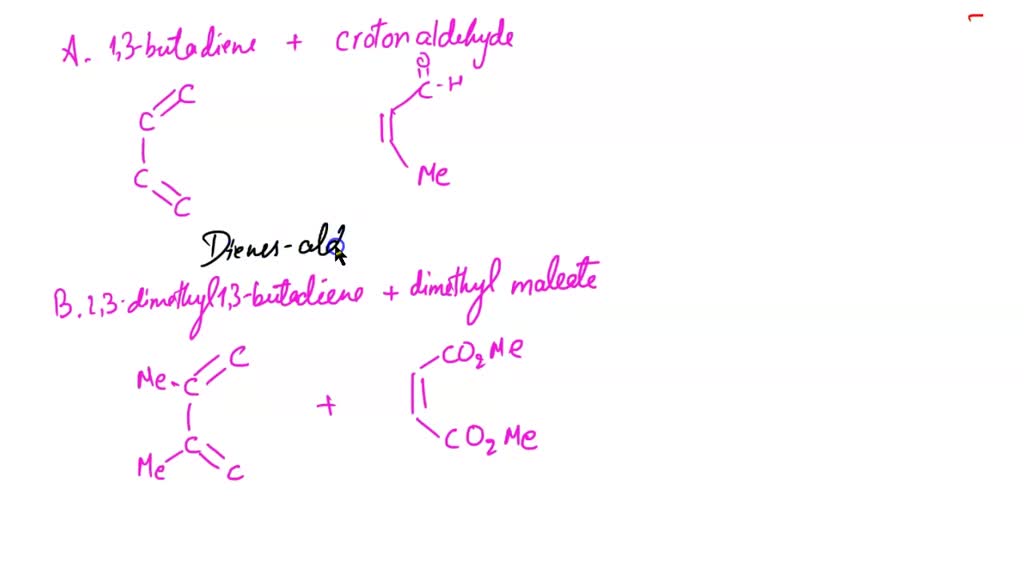 A. 1,3-butadiene + crotonaldehyde
O
C C-H
C
C Me
C
Dienes-ald
B. 2,3-dimethyl 1,3-butadiene + dimethyl maleate
C CO2Me
Me-C
+
C CO2Me
Me C